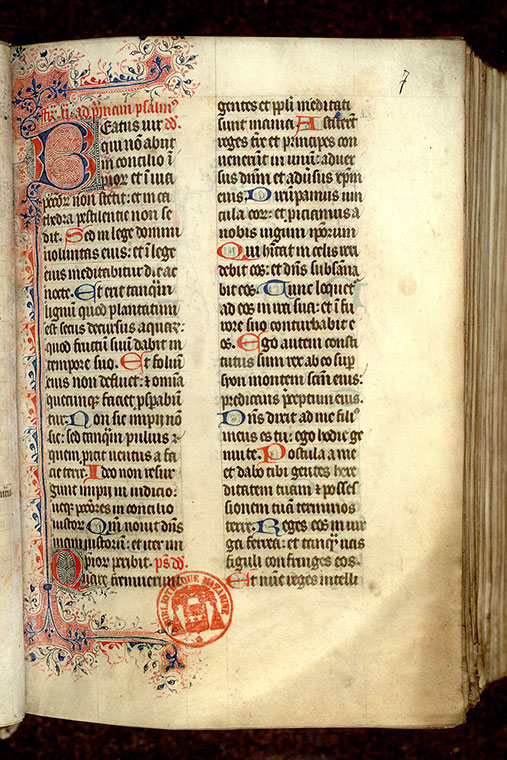 7
fr̃. ii. ad p̃mam psalm⁹
Beatus uir .dd̃.
qui nõ abiit
in concilio ĩ
pior et ĩ uia
pctõr non stetit: et in ca
thedra pestilentie non se
dit. Sed in lege domini
uoluntas eius: et ĩ lege
eius meditabitur die ac
nocte. Et erit tanq̃m
lignũ quod plantatum
est secus decursus aquaꝝ:
quod fructũ suũ dabit in
tempore suo. Et foliũ
eius non defluet: ⁊ omnia
quecunqꝫ faciet psp̃abũ
tur. Non sic impij nõ
sic: sed tanq̃m puluis q̃
quem proicit uentus a fa
cie terre. Ideo non resur
gunt impij in iudicio:
neqꝫ pctõres in concilio
iustor. Qm̃ nouit dñs
uiam iustorũ: et iter im
pior peribit. ps̃ dd̃.
Quare fremuerunt
gentes et ppli meditati
sunt inania. Astiterũt
reges tr̃e et principes con
uenerũt in unũ: aduer
sus dñm et adũsus xp̃m
eius. Dirũpamus uin
cula eor: et piciamus a
nobis iugum ipsorum
Qui hĩtat in celis irri
debit eos: et dñs subsãna
bit eos. Tunc loquet̃
ad eos in ira sua: et ĩ fu
rore suo conturbabit e
os. Ego autem consti
tutus sum rex ab eo sup
syon montem scm̃ eius:
predicans p̃ceptum eius.
Dñs dixit ad me fili⁹
meus es tu: ego hodie ge
nui te. Postula a me
et dabo tibi gentes here
ditatem tuam ⁊ posses
sionem tuam terminos
terre. Reges eos in uir
ga ferrea: et tanq̃ uas
figuli confringes eos.
Et nũc reges intelli
BIBLIOTHEQUE MAZARINE